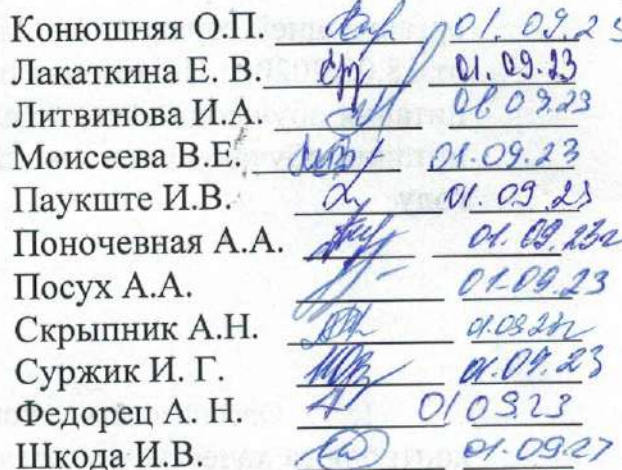 Конюшняя О.П. 01.09.23
Лакаткина Е. В. 01.09.23
Литвинова И.А. 09.23
Моисеева В.Е. 01.09.23
Паукште И.В. 01.09.23
Поночевная А.А. 01.09.23г
Посух А.А. 01.09.23
Скрыпник А.Н. 01.09.23г
Суржик И. Г. 01.09.23
Федорец А. Н. 01 09.23
Шкода И.В. 01.09.23